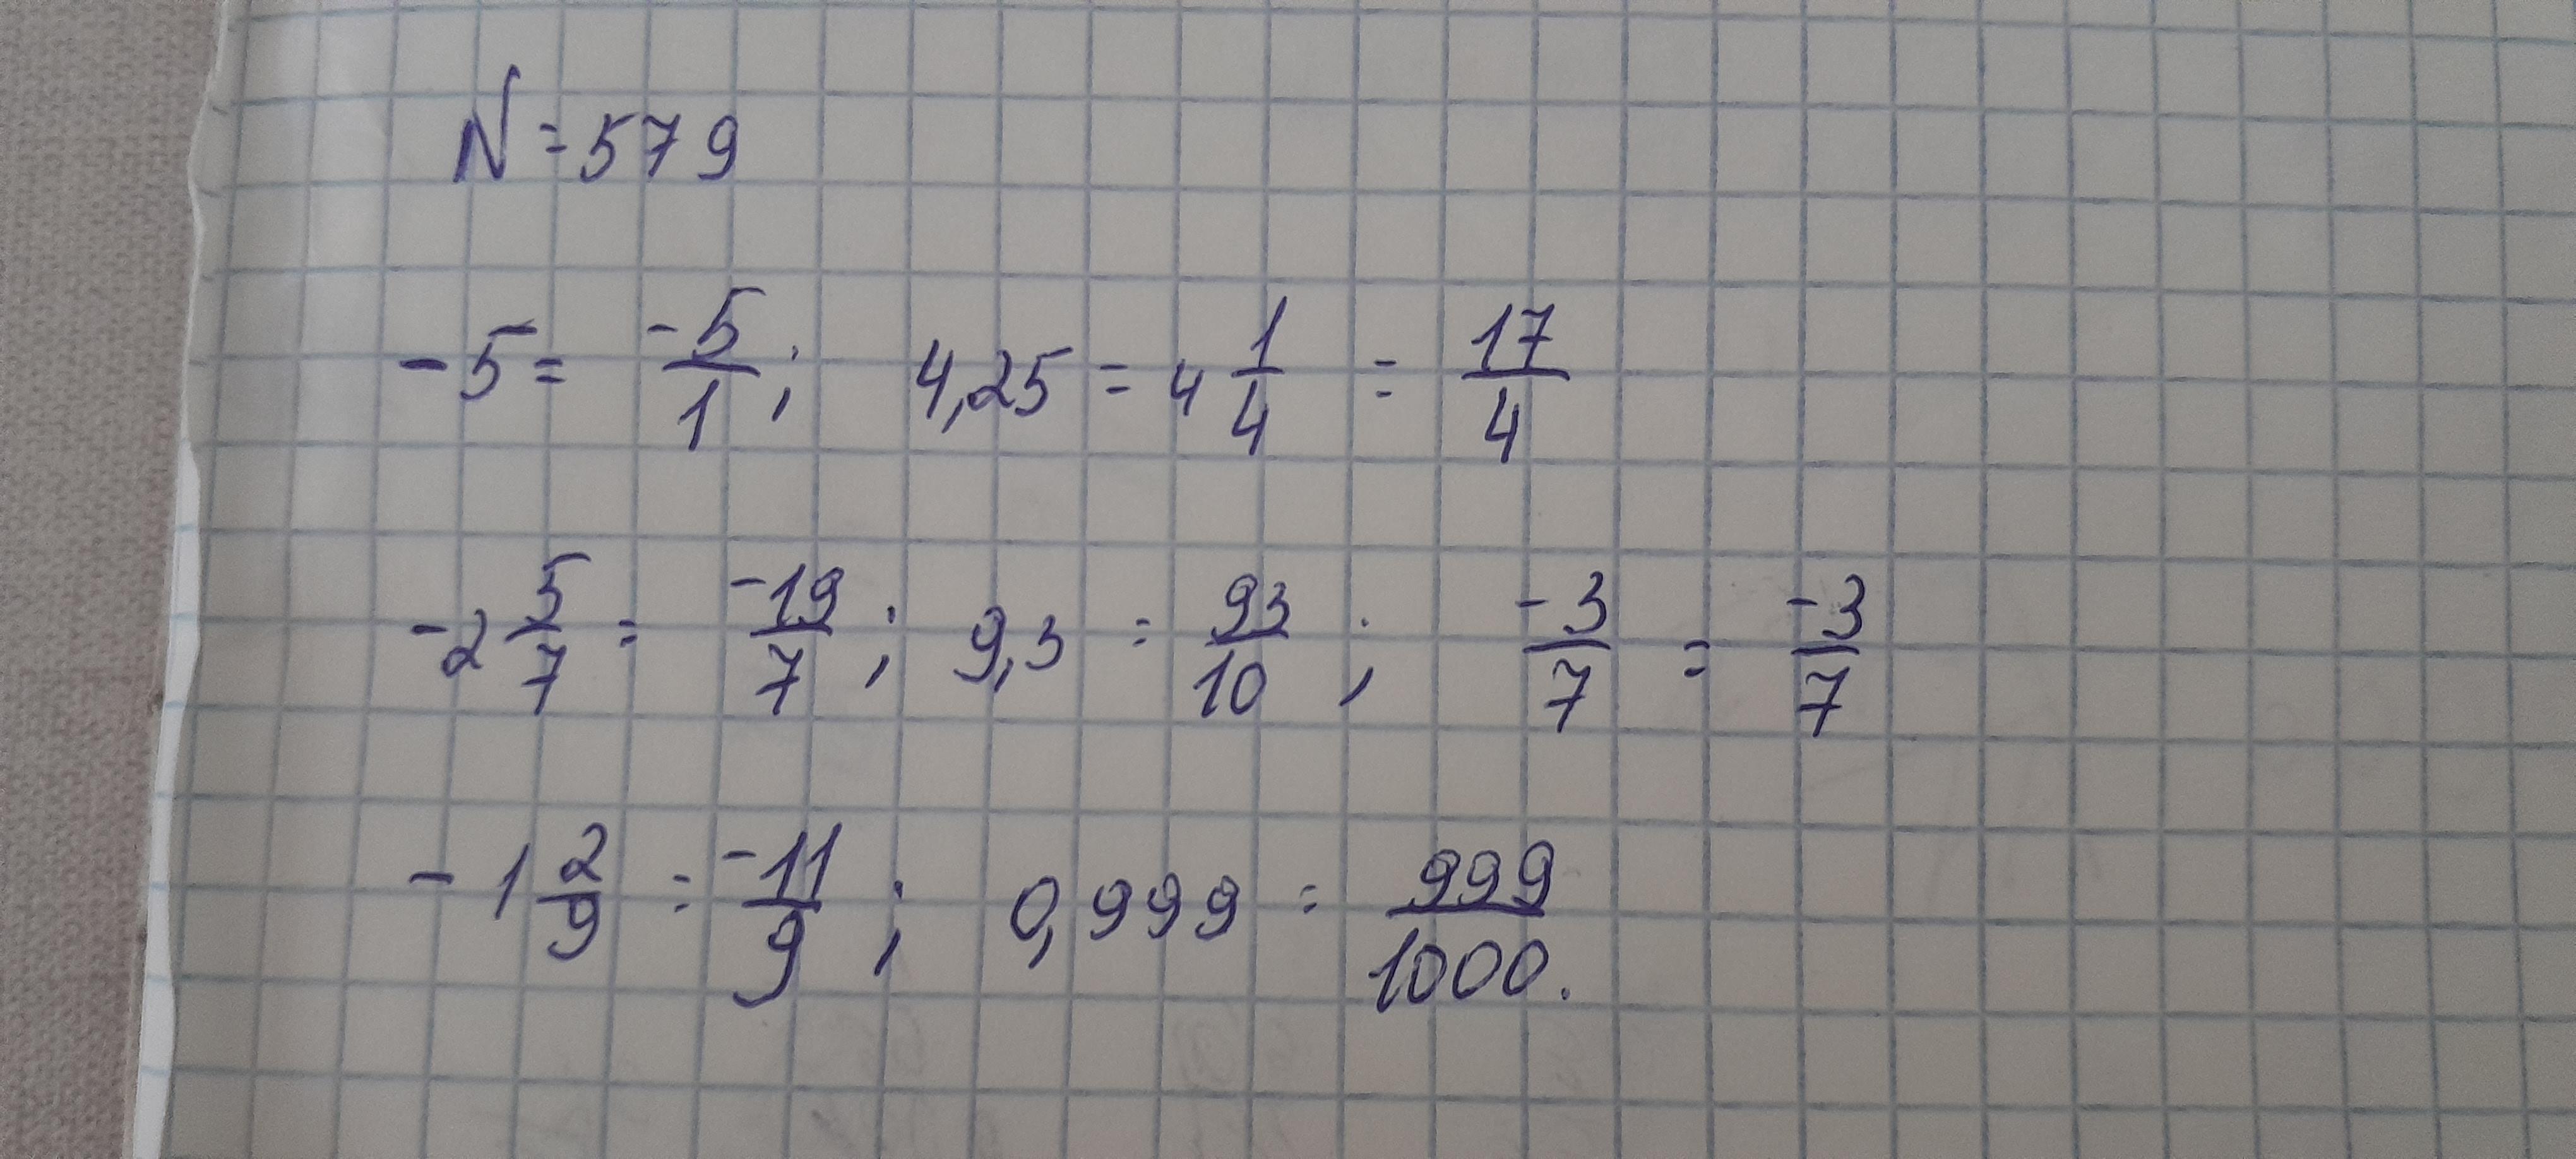 N = 579
-5 = -5/1; 4,25 = 4 1/4 = 17/4
-2 5/7 = -19/7; 9,3 = 93/10; -3/7 = -3/7
-1 2/9 = -11/9; 0,999 = 999/1000.